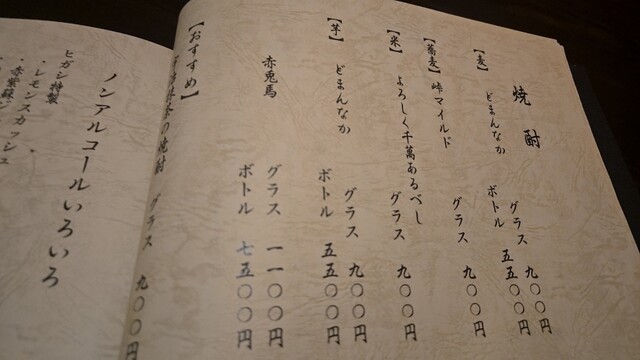 焼酎
【麦】 どまんなか グラス 九〇〇円
ボトル 五五〇〇円
【蕎麦】 峠マイルド グラス 九〇〇円
【米】 よろしく千萬あるべし グラス 九〇〇円
【芋】 どまんなか グラス 九〇〇円
ボトル 五五〇〇円
赤兎馬 グラス 一一〇〇円
ボトル 七五〇〇円
【おすすめ】
の焼酎 グラス 九〇〇円
ノンアルコールいろいろ
ヒガシ特製
・レモンスカッシュ